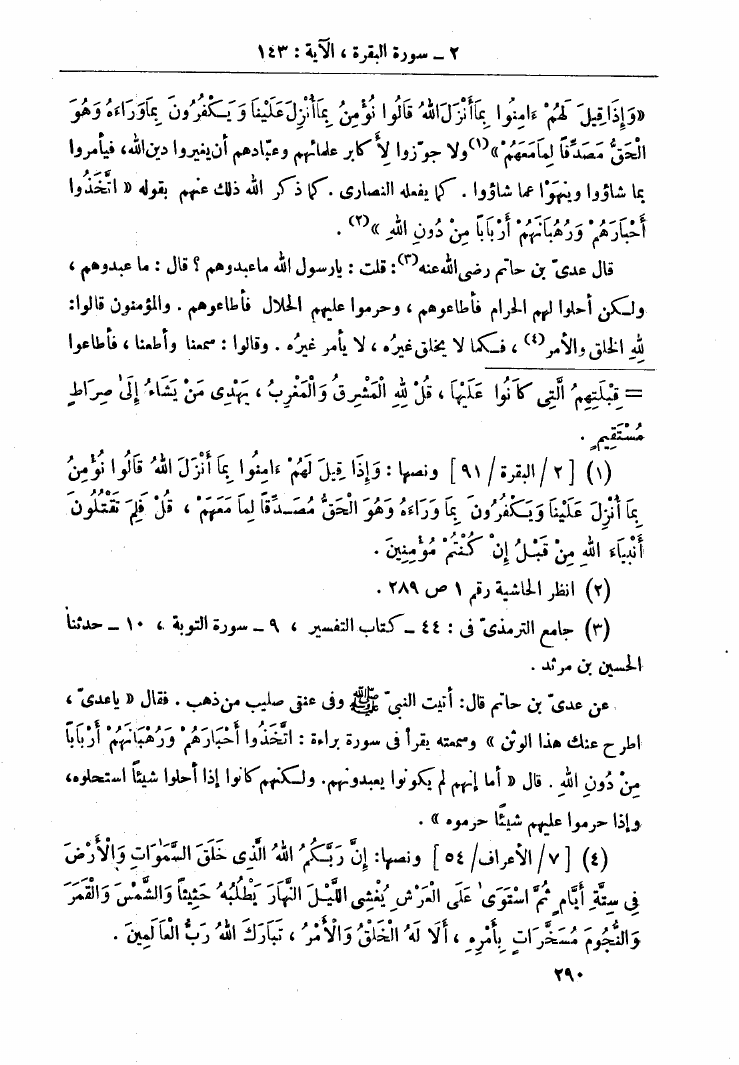 ٢ ــ سورة البقرة ، الآية : ١٤٣
«وَإِذَا قِيلَ لَهُمْ ءَامِنُوا بِمَا أَنْزَلَ اللهُ قَالُوا نُؤْمِنُ بِمَا أُنْزِلَ عَلَيْنَا وَيَكْفُرُونَ بِمَا وَرَاءَهُ وَهُوَ
الْحَقُّ مُصَدِّقًا لِمَا مَعَهُمْ»(١) ولا جوّزوا لأكابر علمائهم وعبّادهم أن يغيروا دين الله، فيأمروا
بما شاؤوا وينهوْا عما شاؤوا . كما يفعله النصارى . كما ذكر الله ذلك عنهم بقوله « اتَّخَذُوا
أَحْبَارَهُمْ وَرُهْبَانَهُمْ أَرْبَابًا مِنْ دُونِ اللهِ »(٢) .
قال عدىّ بن حاتم رضى الله عنه(٣): قلت : يارسول الله ماعبدوهم ؟ قال : ما عبدوهم ،
ولكن أحلوا لهم الحرام فأطاعوهم ، وحرموا عليهم الحلال فأطاعوهم . والمؤمنون قالوا:
للهِ الخلق والأمر(٤) ، فكما لا يخلق غيرُه ، لا يأمر غيرُه . وقالوا : سمعنا وأطعنا ، فأطاعوا
= قِبْلَتِهِمُ الَّتِى كَانُوا عَلَيْهَا ، قُلْ لِلهِ الْمَشْرِقُ وَالْمَغْرِبُ ، يَهْدِى مَنْ يَشَاءُ إِلَىٰ صِرَاطٍ
مُسْتَقِيمٍ .
(١) [٢ / البقرة / ٩١] ونصها : وَإِذَا قِيلَ لَهُمْ ءَامِنُوا بِمَا أَنْزَلَ اللهُ قَالُوا نُؤْمِنُ
بِمَا أُنْزِلَ عَلَيْنَا وَيَكْفُرُونَ بِمَا وَرَاءَهُ وَهُوَ الْحَقُّ مُصَدِّقًا لِمَا مَعَهُمْ ، قُلْ فَلِمَ تَقْتُلُونَ
أَنْبِيَاءَ اللهِ مِنْ قَبْلُ إِنْ كُنْتُمْ مُؤْمِنِينَ .
(٢) انظر الحاشية رقم ١ ص ٢٨٩ .
(٣) جامع الترمذىّ فى : ٤٤ ــ كتاب التفسير ، ٩ ــ سورة التوبة ، ١٠ ــ حدثنا
الحسين بن مرثد .
عن عدىّ بن حاتم قال: أتيت النبىّ ﷺ وفى عنقى صليب من ذهب . فقال « ياعدىّ ،
اطرح عنك هذا الوثن » وسمعته يقرأ فى سورة براءة : اتَّخَذُوا أَحْبَارَهُمْ وَرُهْبَانَهُمْ أَرْبَابًا
مِنْ دُونِ اللهِ . قال « أما إنهم لم يكونوا يعبدونهم. ولكنهم كانوا إذا أحلوا شيئًا استحلوه،
وإذا حرموا عليهم شيئًا حرموه » .
(٤) [٧ / الأعراف / ٥٤] ونصها: إِنَّ رَبَّكُمُ اللهُ الَّذِى خَلَقَ السَّمٰوَاتِ وَالْأَرْضَ
فِى سِتَّةِ أَيَّامٍ ثُمَّ اسْتَوَىٰ عَلَى الْعَرْشِ يُغْشِى اللَّيْلَ النَّهَارَ يَطْلُبُهُ حَثِيثًا وَالشَّمْسَ وَالْقَمَرَ
وَالنُّجُومَ مُسَخَّرَاتٍ بِأَمْرِهِ ، أَلَا لَهُ الْخَلْقُ وَالْأَمْرُ ، تَبَارَكَ اللهُ رَبُّ الْعَالَمِينَ .
٢٩٠